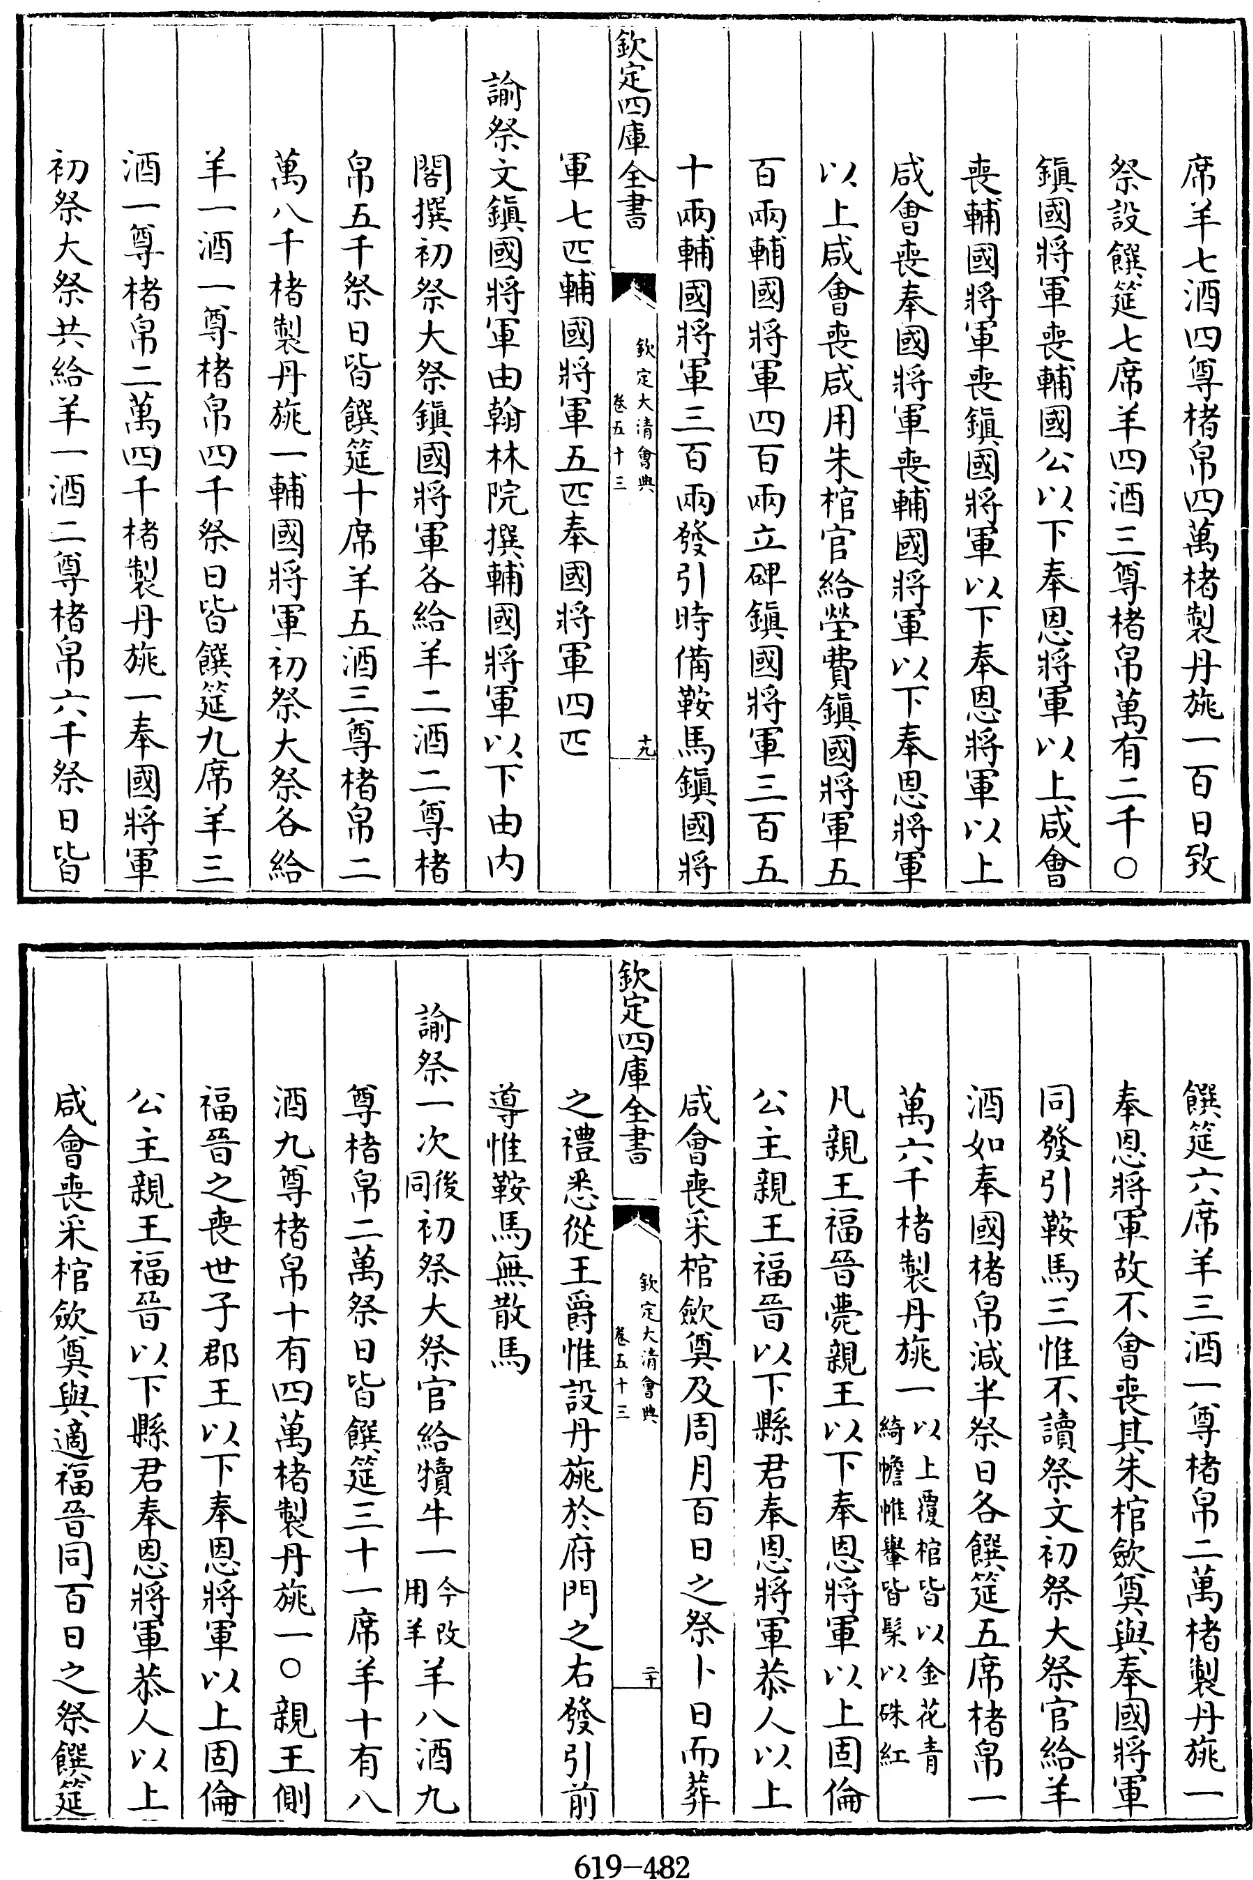 席羊七酒四尊楮帛四萬楮製丹旐一百日致
祭設饌筵七席羊四酒三尊楮帛萬有二千○
鎮國將軍喪輔國公以下奉恩將軍以上咸會
喪輔國將軍喪鎮國將軍以下奉恩將軍以上
咸會喪奉國將軍喪輔國將軍以下奉恩將軍
以上咸會喪咸用朱棺官給塋費鎮國將軍五
百兩輔國將軍四百兩立碑鎮國將軍三百五
十兩輔國將軍三百兩發引時備鞍馬鎮國將
欽定四庫全書
欽定大清會典
卷五十三
十九
軍七匹輔國將軍五匹奉國將軍四匹
諭祭文鎮國將軍由翰林院撰輔國將軍以下由内
閣撰初祭大祭鎮國將軍各給羊二酒二尊楮
帛五千祭日皆饌筵十席羊五酒三尊楮帛二
萬八千楮製丹旐一輔國將軍初祭大祭各給
羊一酒一尊楮帛四千祭日皆饌筵九席羊三
酒一尊楮帛二萬四千楮製丹旐一奉國將軍
初祭大祭共給羊一酒二尊楮帛六千祭日皆
饌筵六席羊三酒一尊楮帛二萬楮製丹旐一
奉恩將軍故不會喪其朱棺歛奠與奉國將軍
同發引鞍馬三惟不讀祭文初祭大祭官給羊
酒如奉國楮帛減半祭日各饌筵五席楮帛一
萬六千楮製丹旐一以上覆棺皆以金花青
綺幨帷轝皆髹以硃紅
凡親王福晉薨親王以下奉恩將軍以上固倫
公主親王福晉以下縣君奉恩將軍恭人以上
咸會喪采棺歛奠及周月百日之祭卜日而葬
欽定四庫全書
欽定大清會典
卷五十三
二十
之禮悉從王爵惟設丹旐於府門之右發引前
導惟鞍馬無散馬
諭祭一次後同初祭大祭官給犢牛一今改用羊羊八酒九
尊楮帛二萬祭日皆饌筵三十一席羊十有八
酒九尊楮帛十有四萬楮製丹旐一○親王側
福晉之喪世子郡王以下奉恩將軍以上固倫
公主親王福晉以下縣君奉恩將軍恭人以上
咸會喪采棺歛奠與適福晉同百日之祭饌筵
619-482